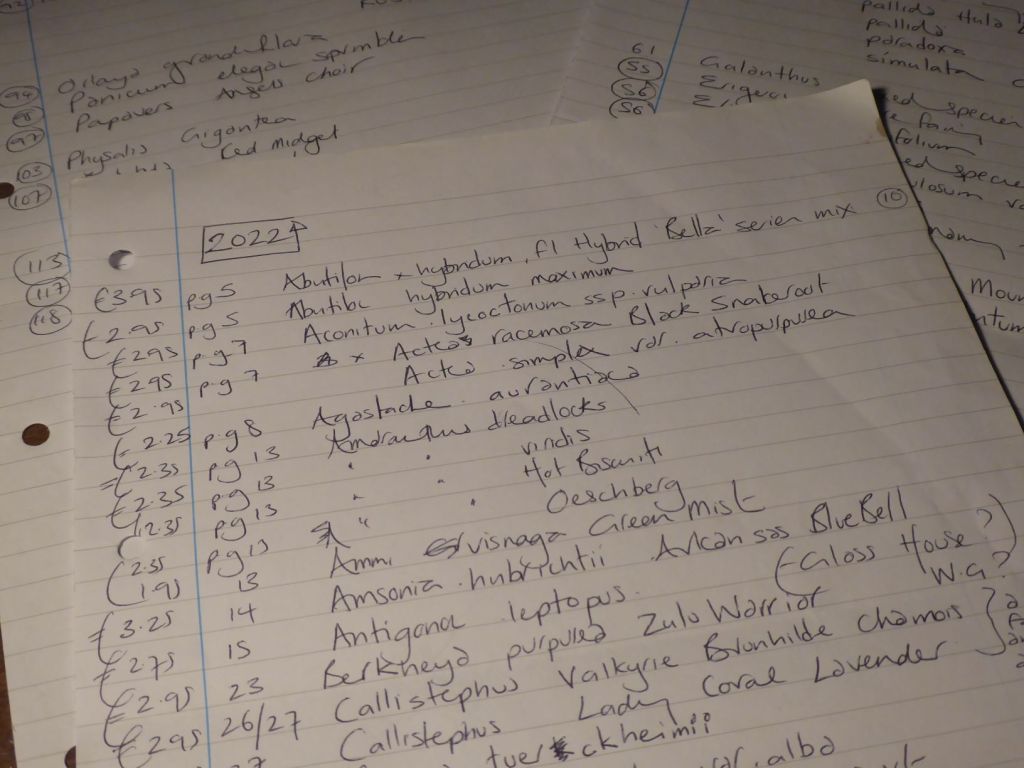 94 Oilaya grandiflora
Panicum elegans sprinkles
97 Papovers Angels choir
103 Physalis Gigantea
107 Red midget
113
117
118
61 Galanthus
55 Erigeron
56
56
pallida Hula
pallida
paradoxa
simulata
species
folium
species
Moun
2022
10
€3.95 pg 5 Abutilon x hybridum, F1 Hybrid 'Bella' series mix
€2.95 pg 5 Abutilo hybridum maximum
€2.95 p.g 7 Aconitum. lycoctonum ssp. vulparia
€2.95 p.g 7 x Actea racemosa Black Snakeroot
€2.95 Actea simplex var. atropurpurea
€2.25 p.g 8 Agastache. aurantiaca
€2.35 pg 13 Amaranthus dreadlocks
€2.35 pg 13 " " viridis
€2.35 pg 13 " " Hot Biscuits
€2.35 pg 13 " " Oeschberg
€1.95 13 Ammi visnaga Green Mist
€3.25 14 Amsonia. hubrichtii Arkansas Blue Bell
€2.75 15 Antigona leptopus. (Glass House?)
W.G?
€2.95 23 Berkheya purpurea Zulu Warrior
€2.95 26/27 Callistephus Valkyrie Brunhilde Chamois
Callistephus Lady Coral Lavender.
tuer ckheimii
alba